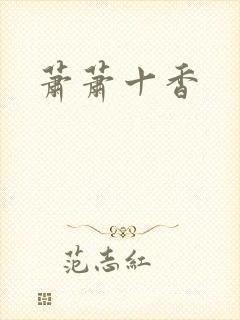 萧萧十香
范志红